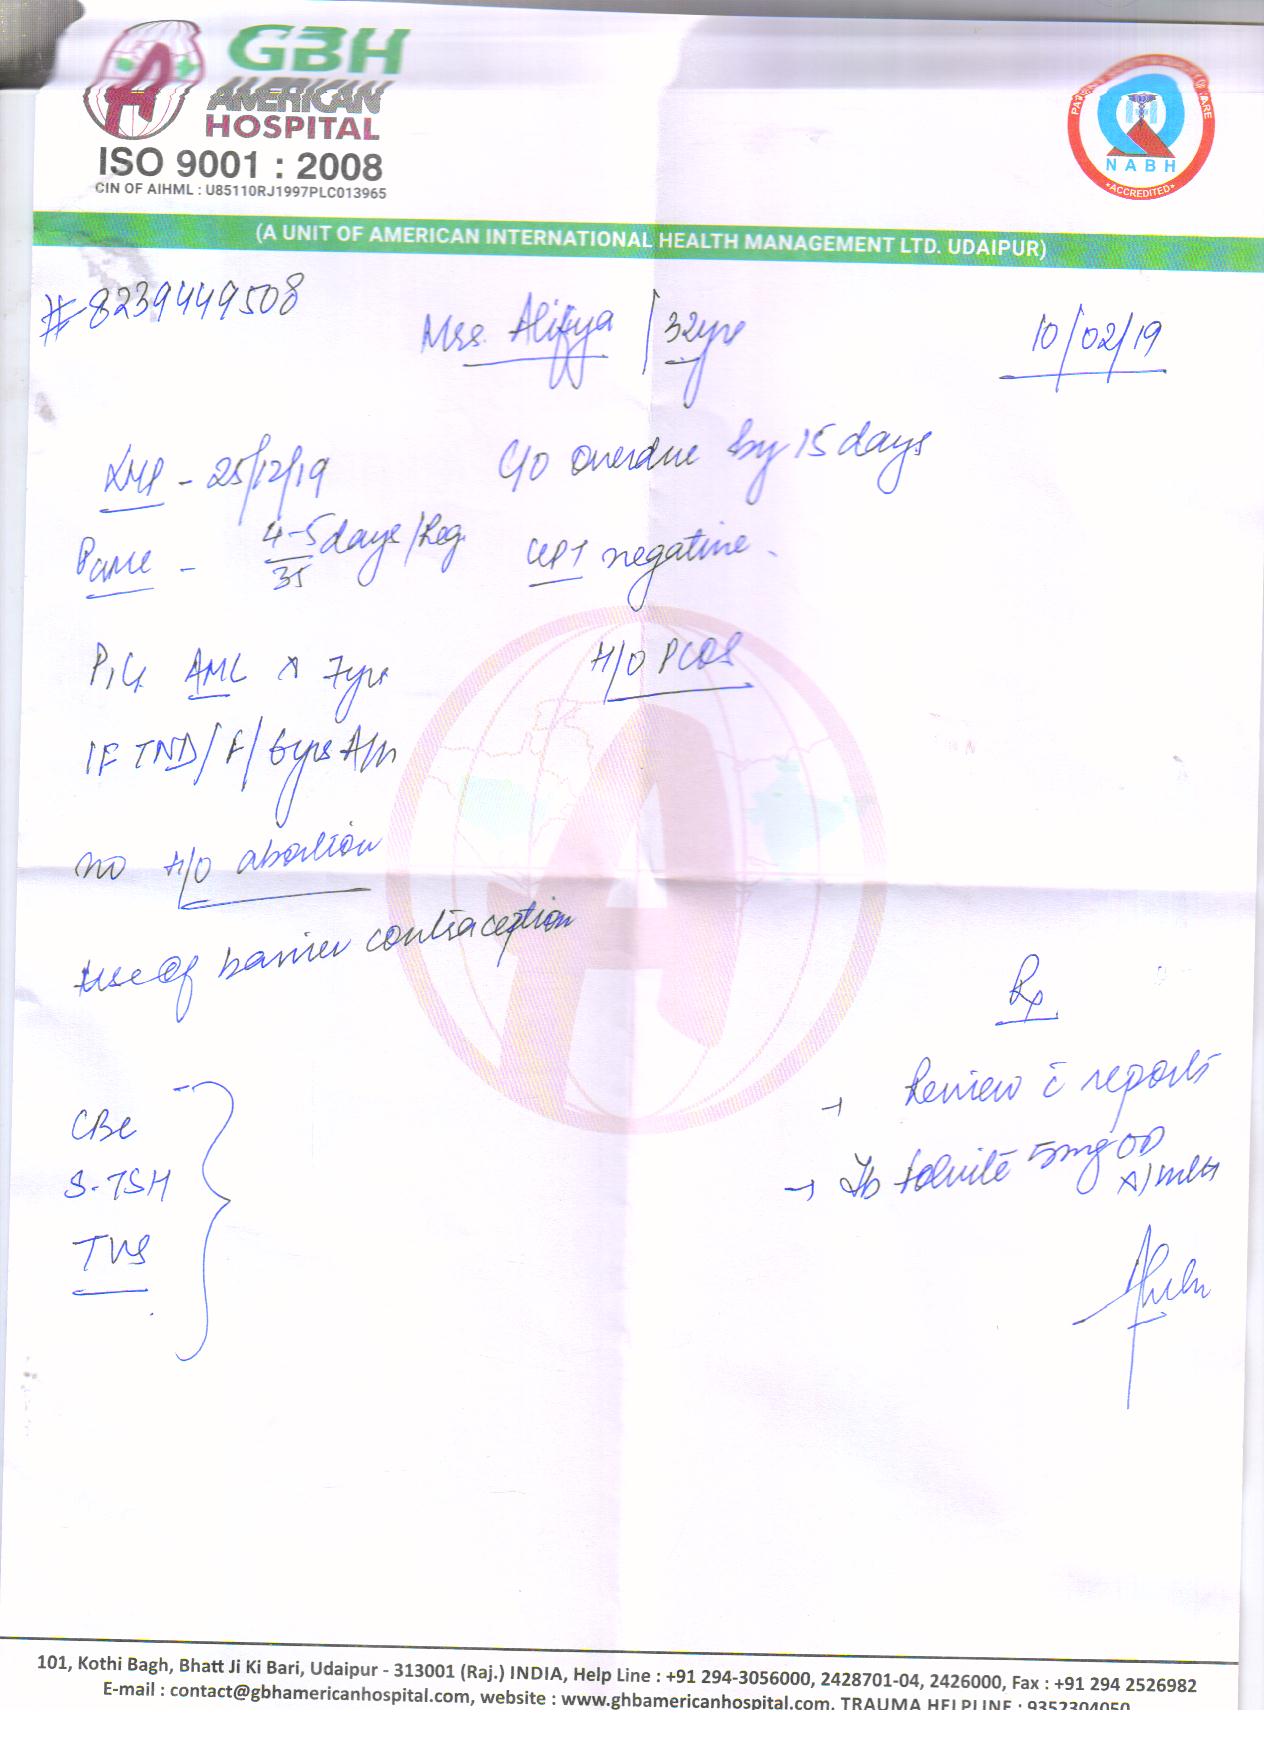 GBH
AMERICAN
HOSPITAL
ISO 9001 : 2008
CIN OF AIHML : U85110RJ1997PLC013965
NABH
•ACCREDITED•
(A UNIT OF AMERICAN INTERNATIONAL HEALTH MANAGEMENT LTD. UDAIPUR)
#8239449508
Mrs. Alifya / 32yrs
10/02/19
LMP - 25/12/19
C/O overdue by 15 days
PaMC - 4-5 days/Reg
35
UPT negative.
P1L1 AML x 7yrs
H/O PCOS
1F TND/F/6yrs A/H
no H/O abortion
use of barrier contraception
Rx
CBC
S-TSH
TVS
→ Review c̄ reports
→ Tb folvite 5mg OD
x 1 mth
101, Kothi Bagh, Bhatt Ji Ki Bari, Udaipur - 313001 (Raj.) INDIA, Help Line : +91 294-3056000, 2428701-04, 2426000, Fax : +91 294 2526982
E-mail : contact@gbhamericanhospital.com, website : www.ghbamericanhospital.com. TRAUMA HELPLINE : 9352304050